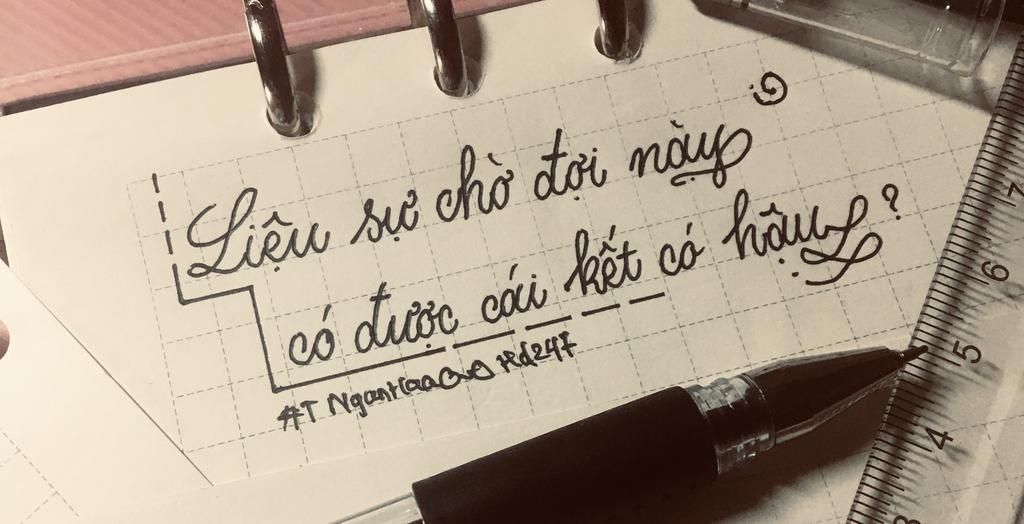 Liệu sự chờ đợi này
có được cái kết có hậu?
#T
7
6
5
4